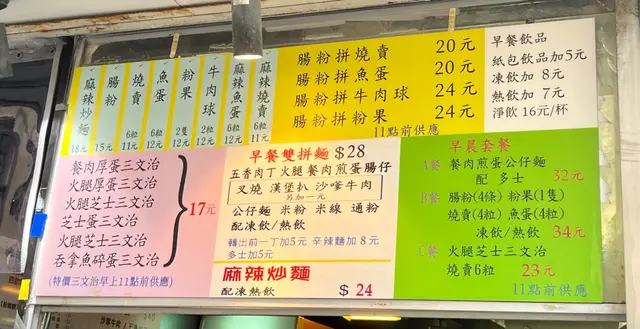 麻辣炒麵 18元
腸粉 15元
燒賣 6粒 11元
魚蛋 6粒 12元
粉果 2隻 12元
牛肉球 2粒 12元
麻辣魚蛋 6粒 12元
麻辣燒賣 6粒 11元
腸粉拼燒賣 20元
腸粉拼魚蛋 20元
腸粉拼牛肉球 24元
腸粉拼粉果 24元
11點前供應
早餐飲品
紙包飲品加5元
凍飲加 8元
熱飲加 7元
淨飲 16元/杯
餐肉厚蛋三文治
火腿厚蛋三文治
火腿芝士三文治
芝士蛋三文治
火腿蛋三文治
吞拿魚碎蛋三文治
17元
(特價三文治早上11點前供應)
早餐雙拼麵 $28
五香肉丁 火腿 餐肉煎蛋 腸仔
叉燒 漢堡扒 沙嗲牛肉
另加一元
公仔麵 米粉 米線 通粉
配凍飲/熱飲
轉出前一丁加5元 辛辣麵加8元
多士加5元
麻辣炒麵
配凍熱飲 $ 24
早晨套餐
A餐 餐肉煎蛋公仔麵
配 多士 32元
B餐 腸粉(4條) 粉果(1隻)
燒賣(4粒) 魚蛋(4粒)
凍飲/熱飲 34元
C餐 火腿芝士三文治
燒賣6粒 23元
11點前供應